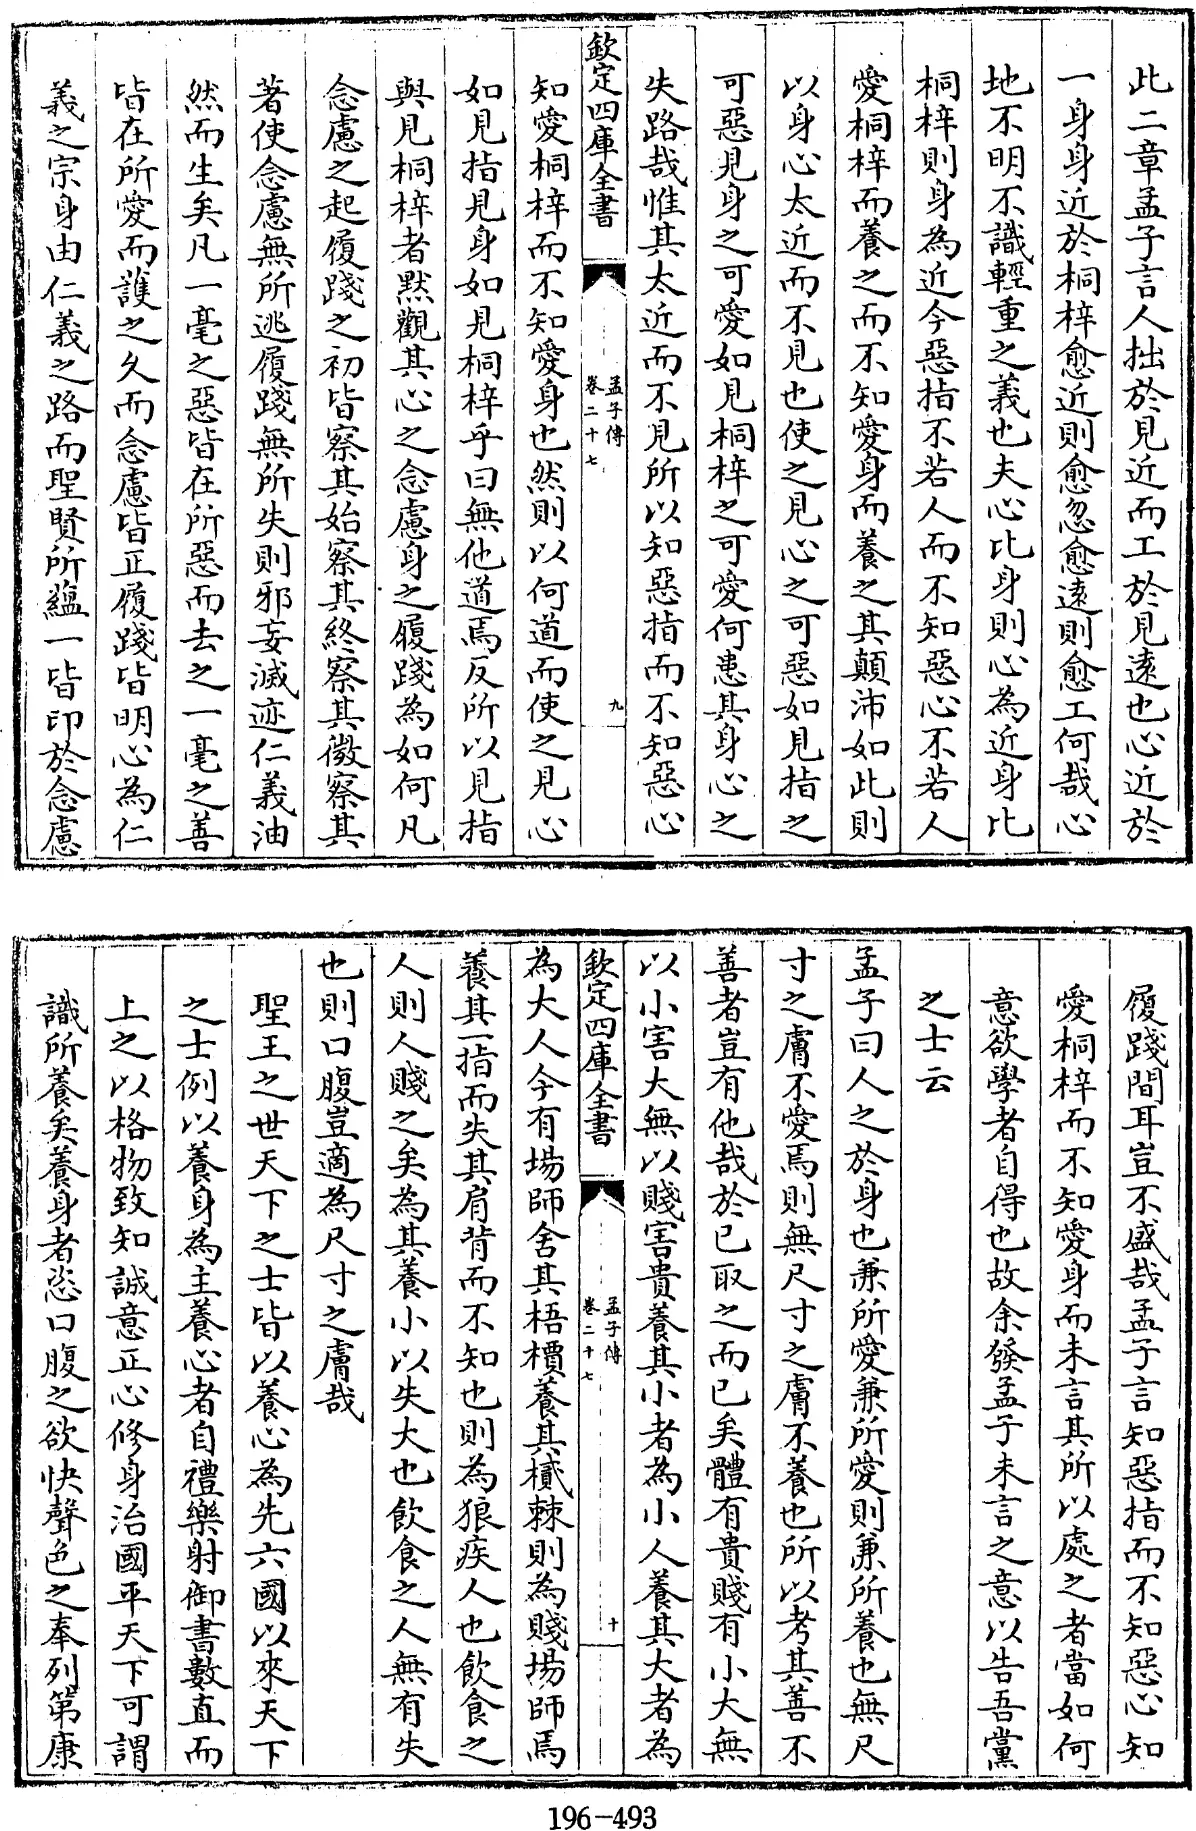 此二章孟子言人拙於見近而工於見逺也心近於
一身身近於桐梓愈近則愈忽愈逺則愈工何哉心
地不明不識輕重之義也夫心比身則心為近身比
桐梓則身為近今惡指不若人而不知惡心不若人
愛桐梓而養之而不知愛身而養之其顛沛如此則
以身心太近而不見也使之見心之可惡如見指之
可惡見身之可愛如見桐梓之可愛何患其身心之
失路哉惟其太近而不見所以知惡指而不知惡心
欽定四庫全書
孟子傳
卷二十七
九
知愛桐梓而不知愛身也然則以何道而使之見心
如見指見身如見桐梓乎曰無他道焉反所以見指
與見桐梓者黙觀其心之念慮身之履踐為如何凡
念慮之起履踐之初皆察其始察其終察其微察其
著使念慮無所逃履踐無所失則邪妄滅迹仁義油
然而生矣凡一毫之惡皆在所惡而去之一毫之善
皆在所愛而護之久而念慮皆正履踐皆明心為仁
義之宗身由仁義之路而聖賢所蘊一皆印於念慮
履踐間耳豈不盛哉孟子言知惡指而不知惡心知
愛桐梓而不知愛身而未言其所以處之者當如何
意欲學者自得也故余發孟子未言之意以告吾黨
之士云
孟子曰人之於身也兼所愛兼所愛則兼所養也無尺
寸之膚不愛焉則無尺寸之膚不養也所以考其善不
善者豈有他哉於已取之而已矣體有貴賤有小大無
以小害大無以賤害貴養其小者為小人養其大者為
欽定四庫全書
孟子傳
卷二十七
十
為大人今有場師舍其梧檟養其樲棘則為賤場師焉
養其一指而失其肩背而不知也則為狼疾人也飲食之
人則人賤之矣為其養小以失大也飲食之人無有失
也則口腹豈適為尺寸之膚哉
聖王之世天下之士皆以養心為先六國以來天下
之士例以養身為主養心者自禮樂射御書數直而
上之以格物致知誠意正心修身治國平天下可謂
識所養矣養身者恣口腹之欲快聲色之奉列第康
196-493